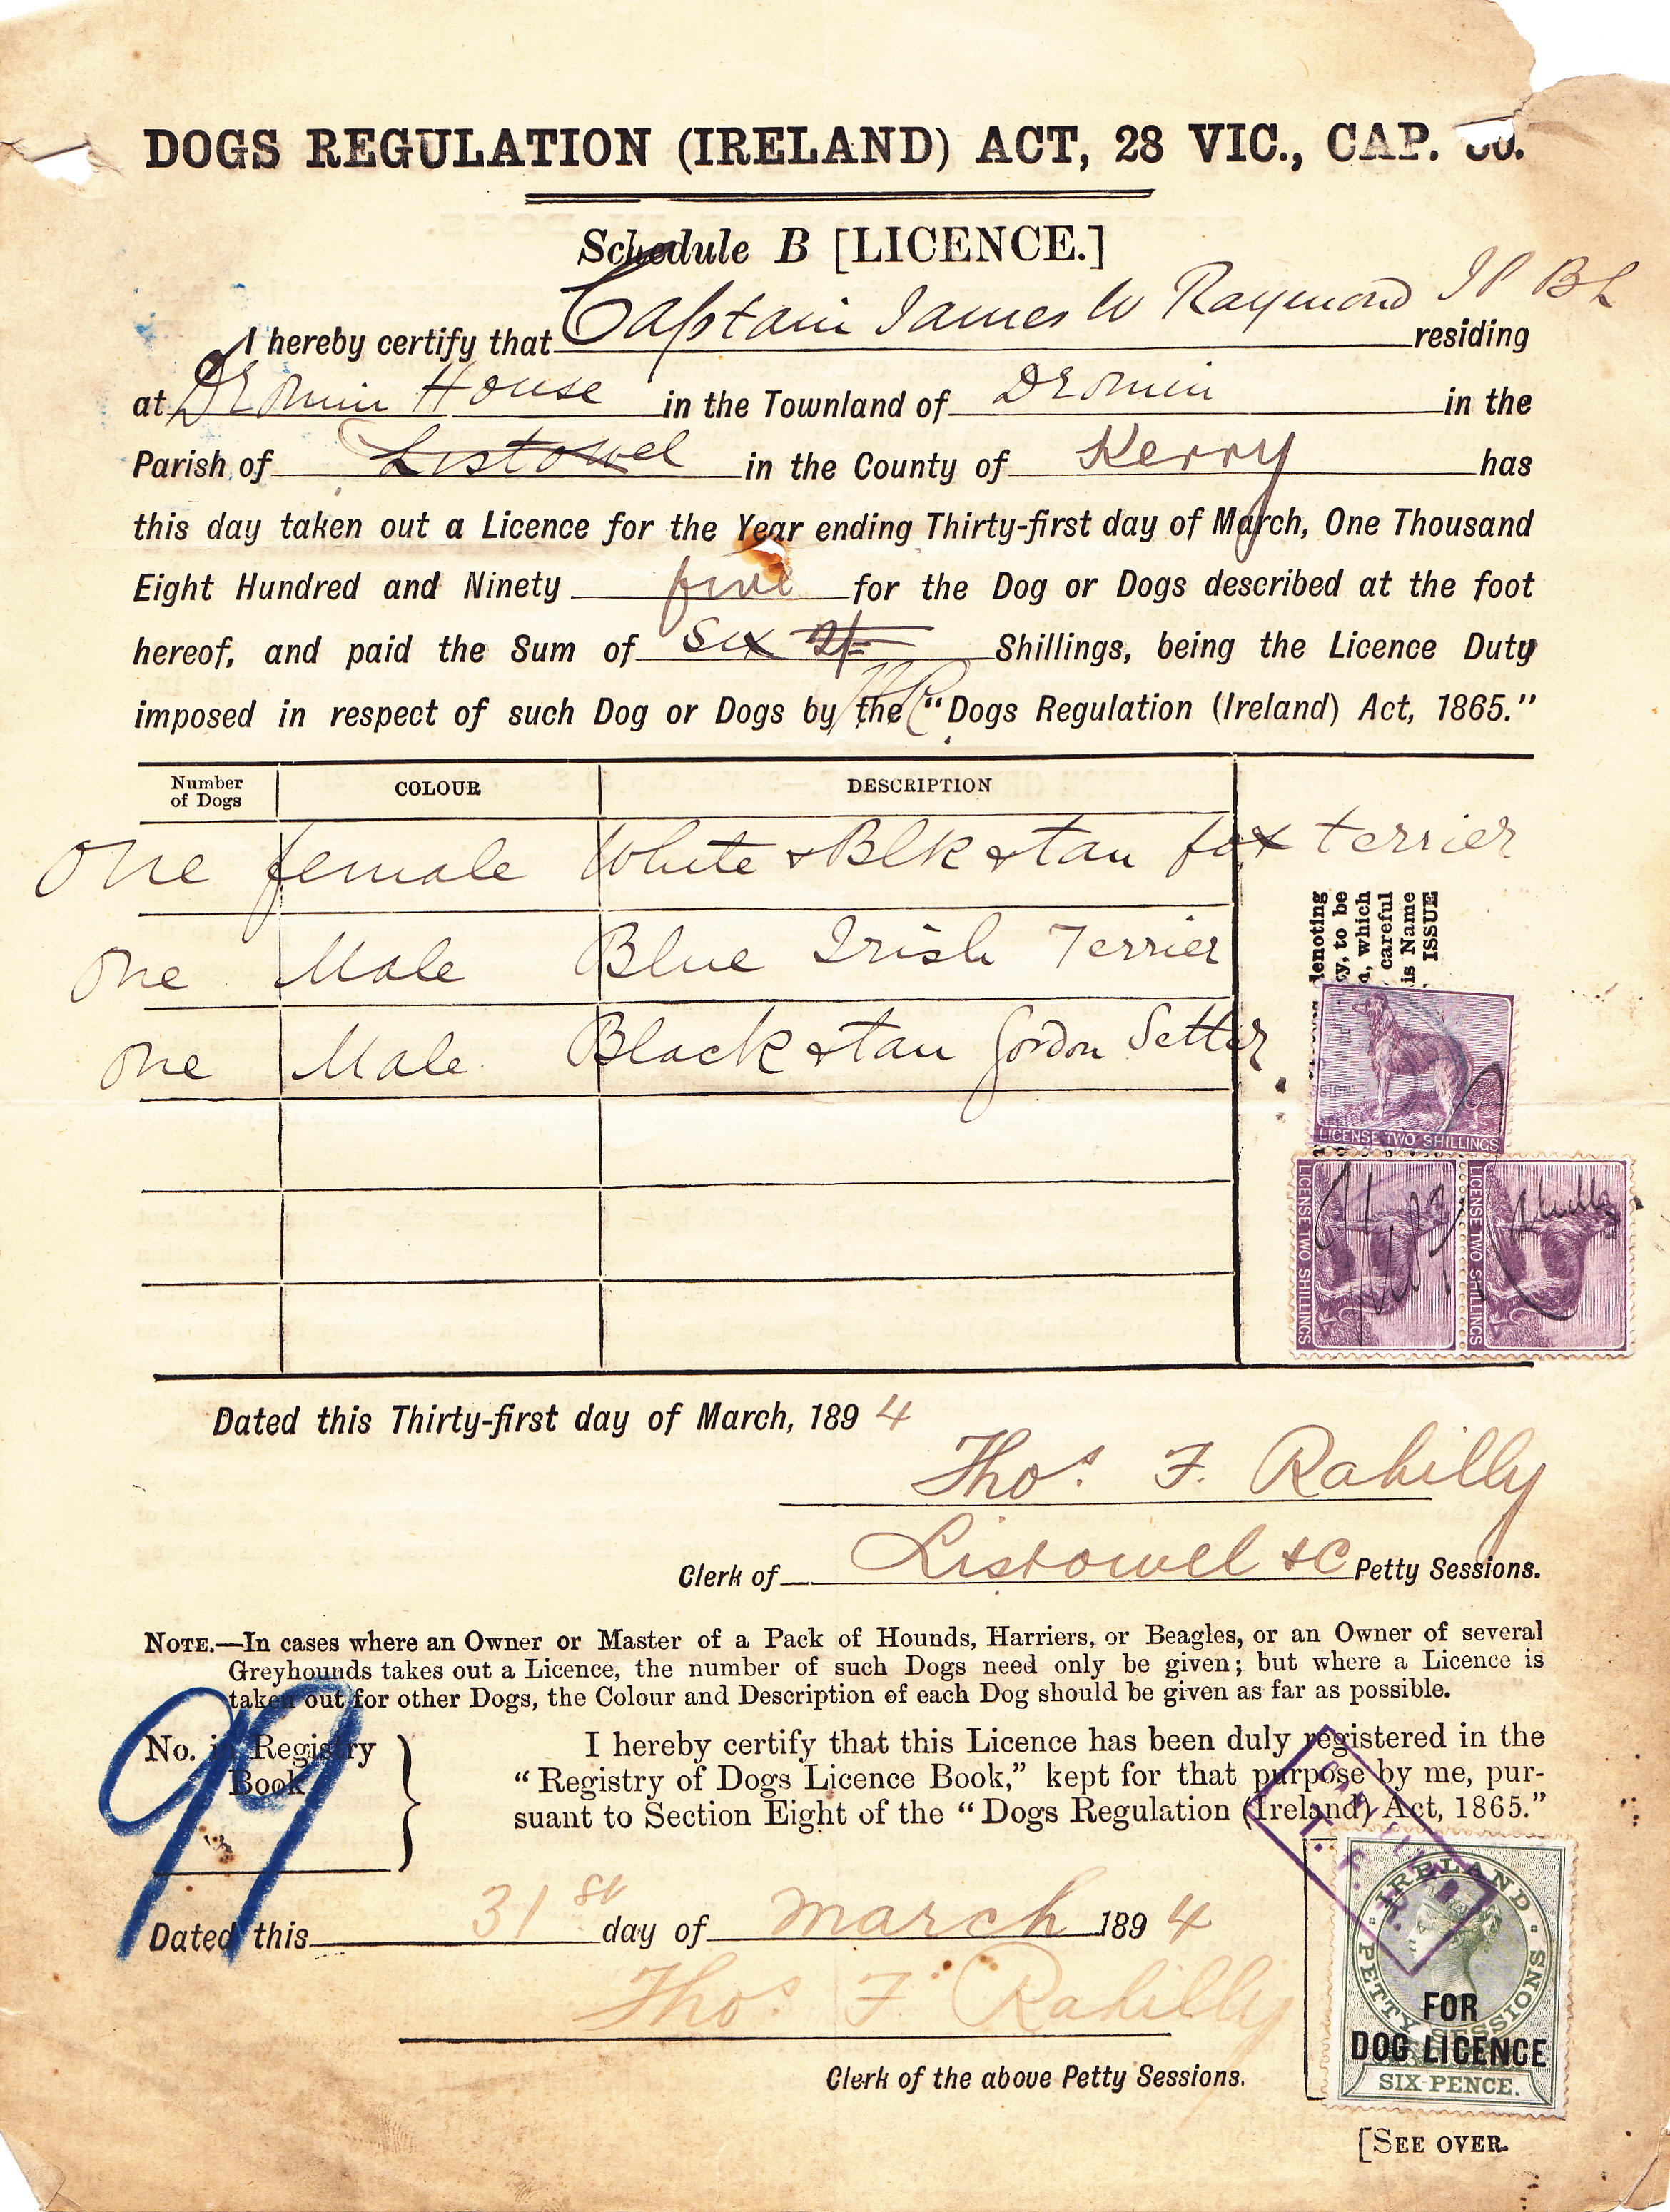 DOGS REGULATION (IRELAND) ACT, 28 VIC., CAP.
Schedule B [LICENCE.]
I hereby certify that Captain James W Raymond JP BL residing
at Dromin House in the Townland of Dromin in the
Parish of Listowel in the County of Kerry has
this day taken out a Licence for the Year ending Thirty-first day of March, One Thousand
Eight Hundred and Ninety five for the Dog or Dogs described at the foot
hereof, and paid the Sum of Six 2/= Shillings, being the Licence Duty
imposed in respect of such Dog or Dogs by the "Dogs Regulation (Ireland) Act, 1865."
Number of Dogs COLOUR DESCRIPTION
One female White & Blk & tan fox terrier
One Male Blue Irish Terrier
One Male Black & tan Gordon Setter
enoting
y, to be
, which
careful
is Name
ISSUE
LICENSE TWO SHILLINGS
LICENSE TWO SHILLINGS
LICENSE TWO SHILLINGS
Dated this Thirty-first day of March, 1894
Thos. F. Rahilly
Clerk of Listowel &C Petty Sessions.
NOTE.—In cases where an Owner or Master of a Pack of Hounds, Harriers, or Beagles, or an Owner of several
Greyhounds takes out a Licence, the number of such Dogs need only be given; but where a Licence is
taken out for other Dogs, the Colour and Description of each Dog should be given as far as possible.
99
No. in Registry
Book
I hereby certify that this Licence has been duly registered in the
"Registry of Dogs Licence Book," kept for that purpose by me, pur-
suant to Section Eight of the "Dogs Regulation (Ireland) Act, 1865."
Dated this 31st day of March 1894
Thos. F. Rahilly
Clerk of the above Petty Sessions.
IRELAND
PETTY SESSIONS
FOR
DOG LICENCE
SIX-PENCE.
[SEE OVER.